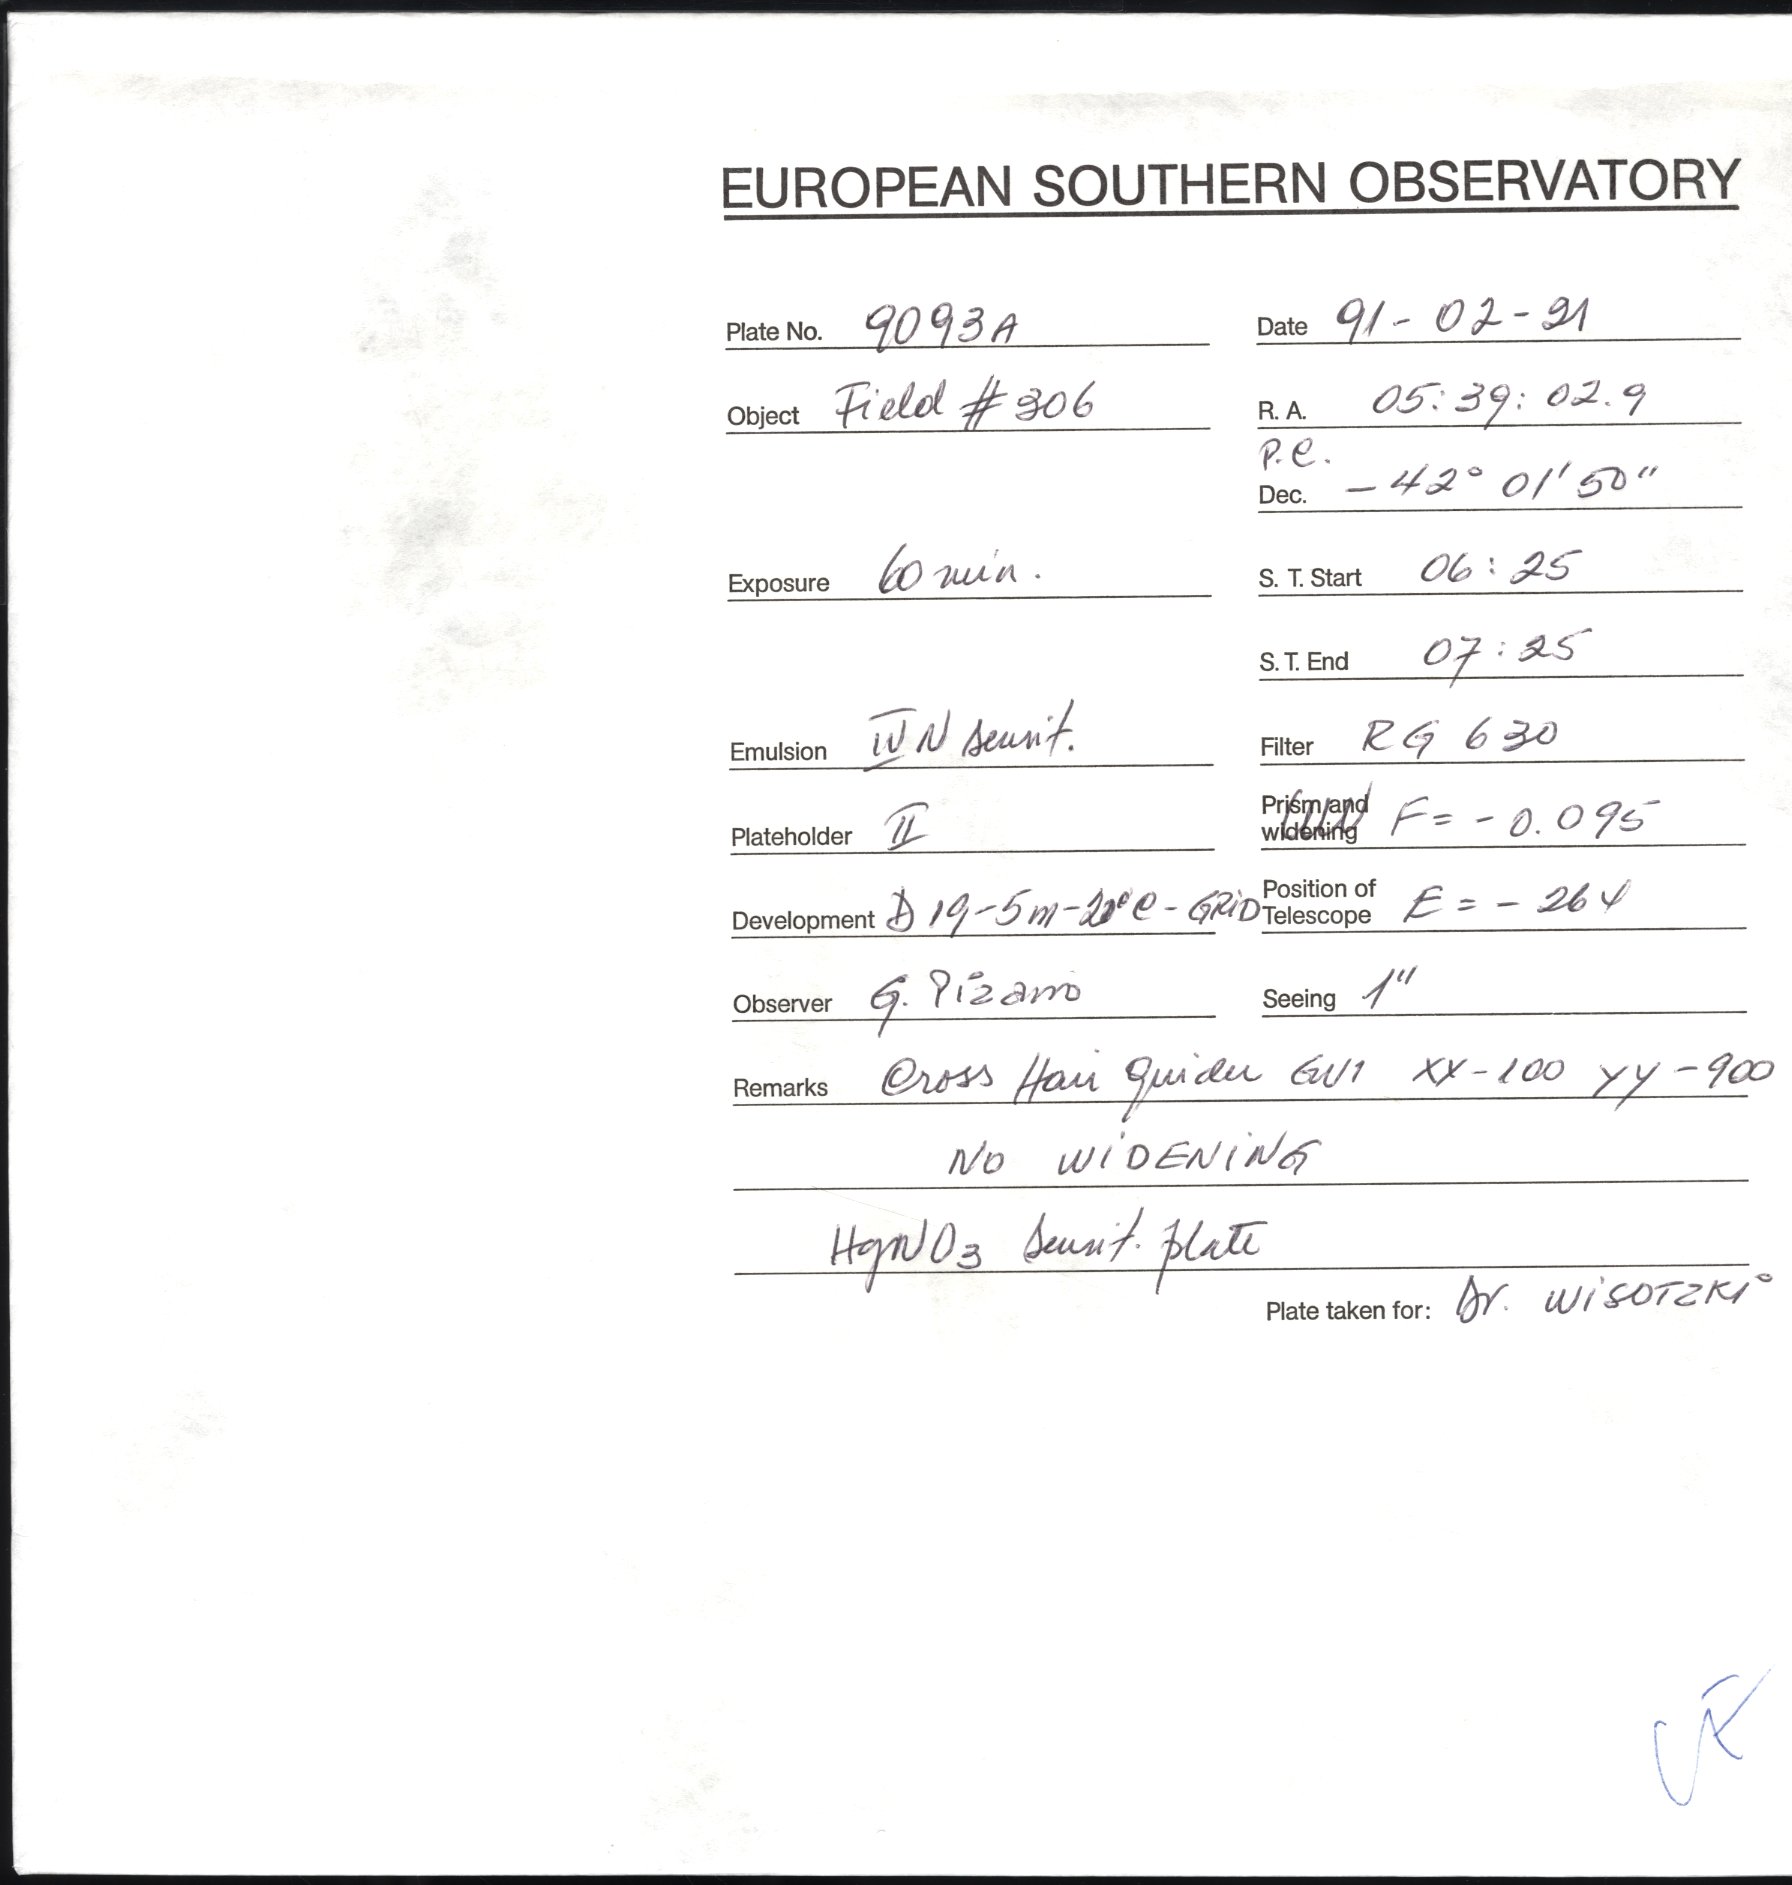 EUROPEAN SOUTHERN OBSERVATORY
Plate No. 9093A Date 91-02-21
Object Field #306 R. A. 05:39:02.9
P.C.
Dec. -42° 01' 50"
Exposure 60 min. S. T. Start 06:25
S. T. End 07:25
Emulsion IV N sensit. Filter RG 630
Plateholder II Prism and widening F= -0.095
Development D19-5m-20°C-GRiD Position of Telescope E = -264
Observer G. Pizarro Seeing 1"
Remarks Cross Hair guider XX-100 YY-900
NO WiDENiNG
HgNO3 sensit. plate
Plate taken for: Dr. WiSOTZKi